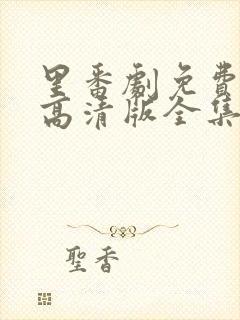 里番劇免費
高清版全集
聖香